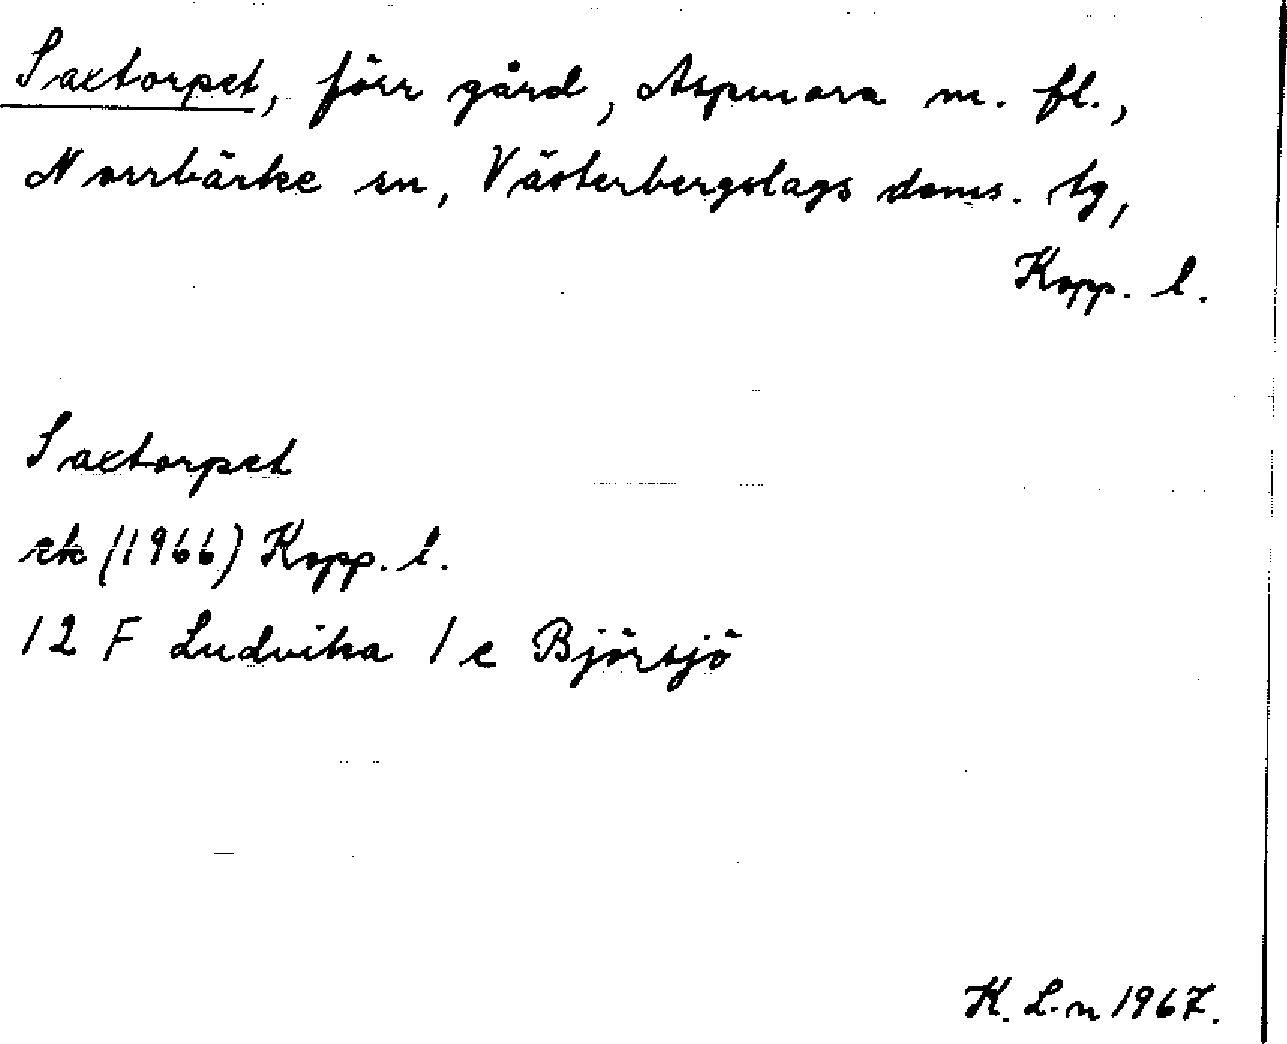 Saxtorpet, förr gård, Aspmora m. fl.,
Norrbärke sn, Västerbergslags doms. tg,
Kopp. l.
Saxtorpet
ek (1966) Kopp. l.
12 F Ludvika 1 e Björsjö
K. L-n 1967.